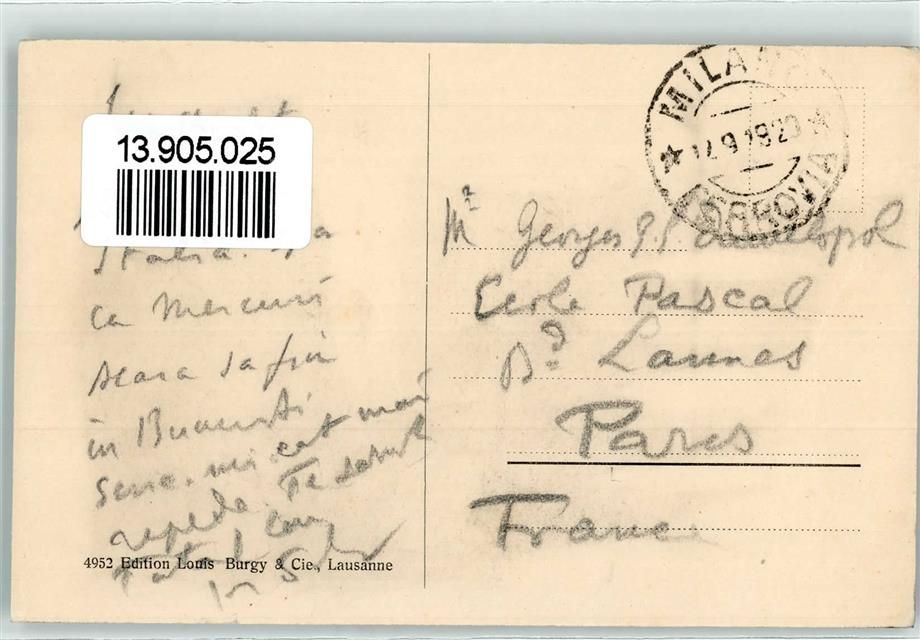 13.905.025
Italia.
ca Mercuri
seara sa fiu
in Bucuresti
Scrie-mi cat mai
repede. Te saruta
4952 Edition Louis Burgy & Cie., Lausanne
MILANO
17.9.1929
FERROVIA
Mr Georges
Ecole Pascal
Bd Lannes
Paris
France